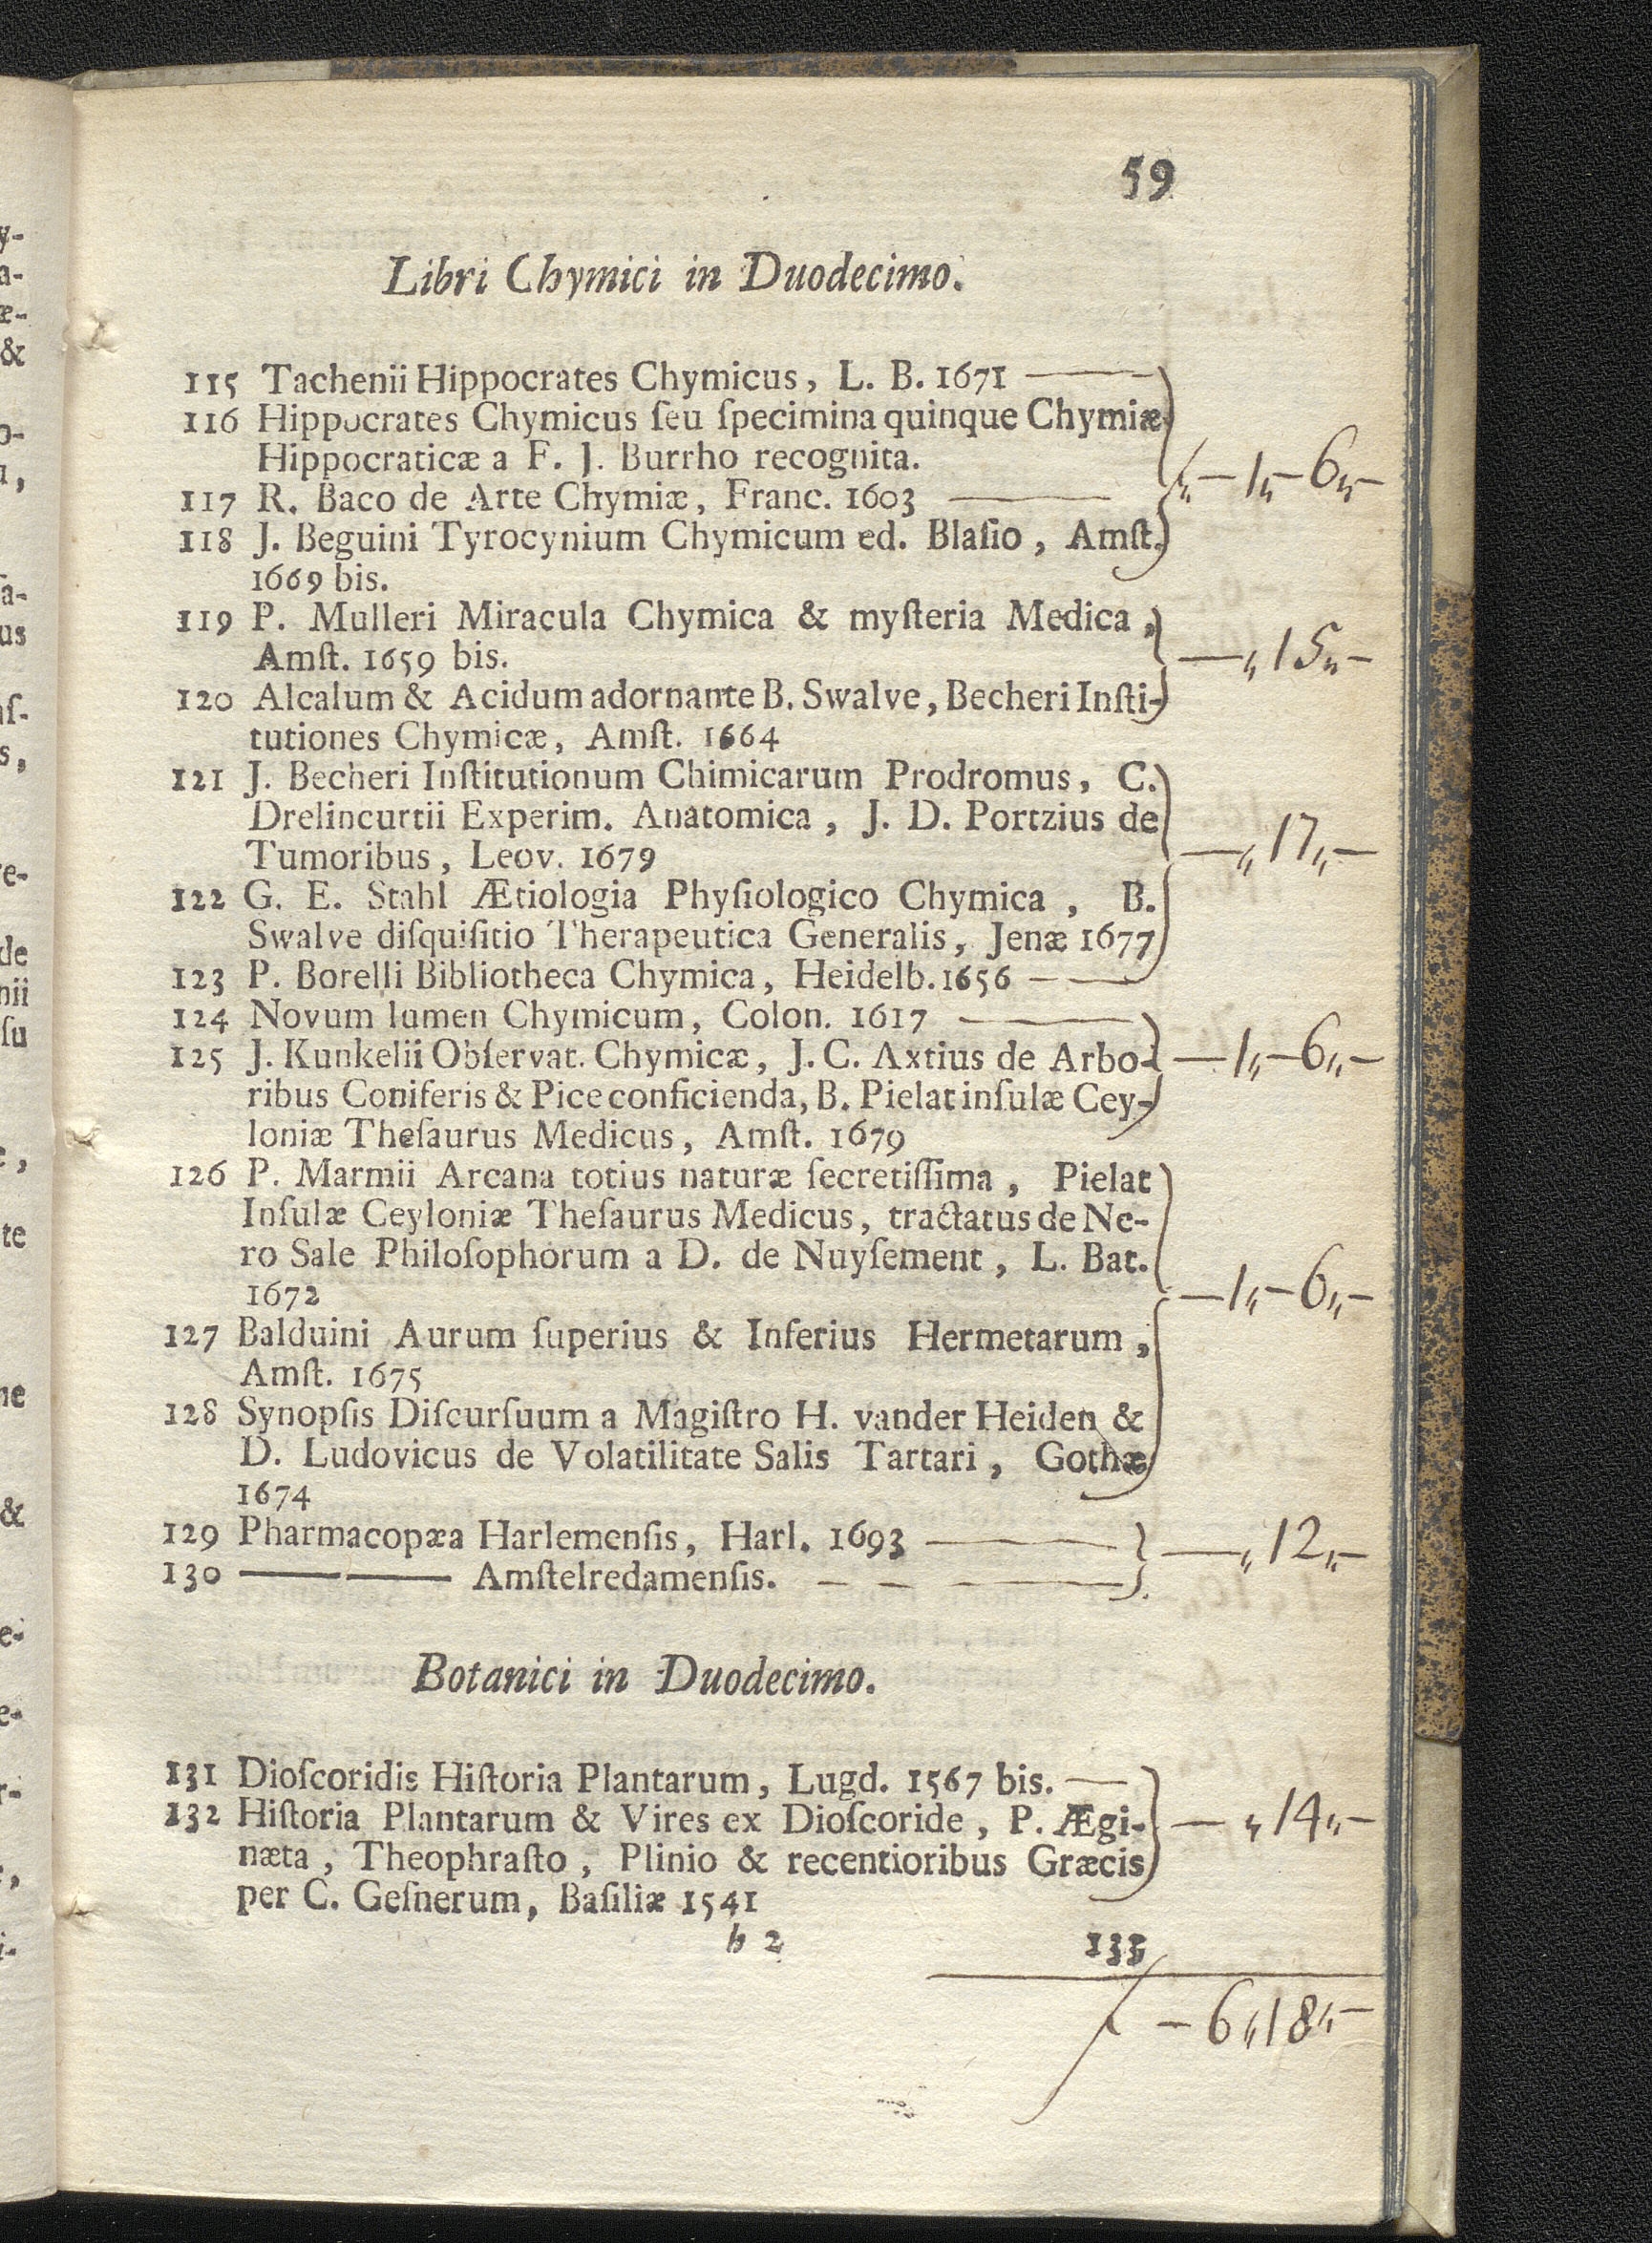 59
Libri Chymici in Duodecimo.
115 Tachenii Hippocrates Chymicus, L. B. 1671
116 Hippocrates Chymicus ſeu ſpecimina quinque Chymiæ
Hippocraticæ a F. J. Burrho recognita.
—1„—6„—
117 R. Baco de Arte Chymiæ, Franc. 1603
118 J. Beguini Tyrocynium Chymicum ed. Blaſio, Amſt.
1669 bis.
119 P. Mulleri Miracula Chymica & myſteria Medica,
Amſt. 1659 bis.
—„15„—
120 Alcalum & Acidum adornante B. Swalve, Becheri Inſti-
tutiones Chymicæ, Amſt. 1664
121 J. Becheri Inſtitutionum Chimicarum Prodromus, C.
Drelincurtii Experim. Anatomica, J. D. Portzius de
Tumoribus, Leov. 1679
—„17„—
122 G. E. Stahl Ætiologia Phyſiologico Chymica, B.
Swalve diſquiſitio Therapeutica Generalis, Jenæ 1677
123 P. Borelli Bibliotheca Chymica, Heidelb. 1656
124 Novum lumen Chymicum, Colon. 1617
125 J. Kunkelii Obſervat. Chymicæ, J. C. Axtius de Arbo-
—1„—6„—
ribus Coniferis & Pice conficienda, B. Pielat inſulæ Cey-
loniæ Theſaurus Medicus, Amſt. 1679
126 P. Marmii Arcana totius naturæ ſecretiſſima, Pielat
Inſulæ Ceyloniæ Theſaurus Medicus, tractatus de Ne-
ro Sale Philoſophorum a D. de Nuyſement, L. Bat.
1672
—1„—6„—
127 Balduini Aurum ſuperius & Inferius Hermetarum,
Amſt. 1675
128 Synopſis Diſcurſuum a Magiſtro H. vander Heiden &
D. Ludovicus de Volatilitate Salis Tartari, Gothæ
1674
129 Pharmacopæa Harlemenſis, Harl. 1693
—„12„—
130 —— —— Amſtelredamenſis.
Botanici in Duodecimo.
131 Dioſcoridis Hiſtoria Plantarum, Lugd. 1567 bis.
132 Hiſtoria Plantarum & Vires ex Dioſcoride, P. Ægi-
—„14„—
næta, Theophraſto, Plinio & recentioribus Græcis
per C. Geſnerum, Baſiliæ 1541
h 2 133
ƒ —6„18„—